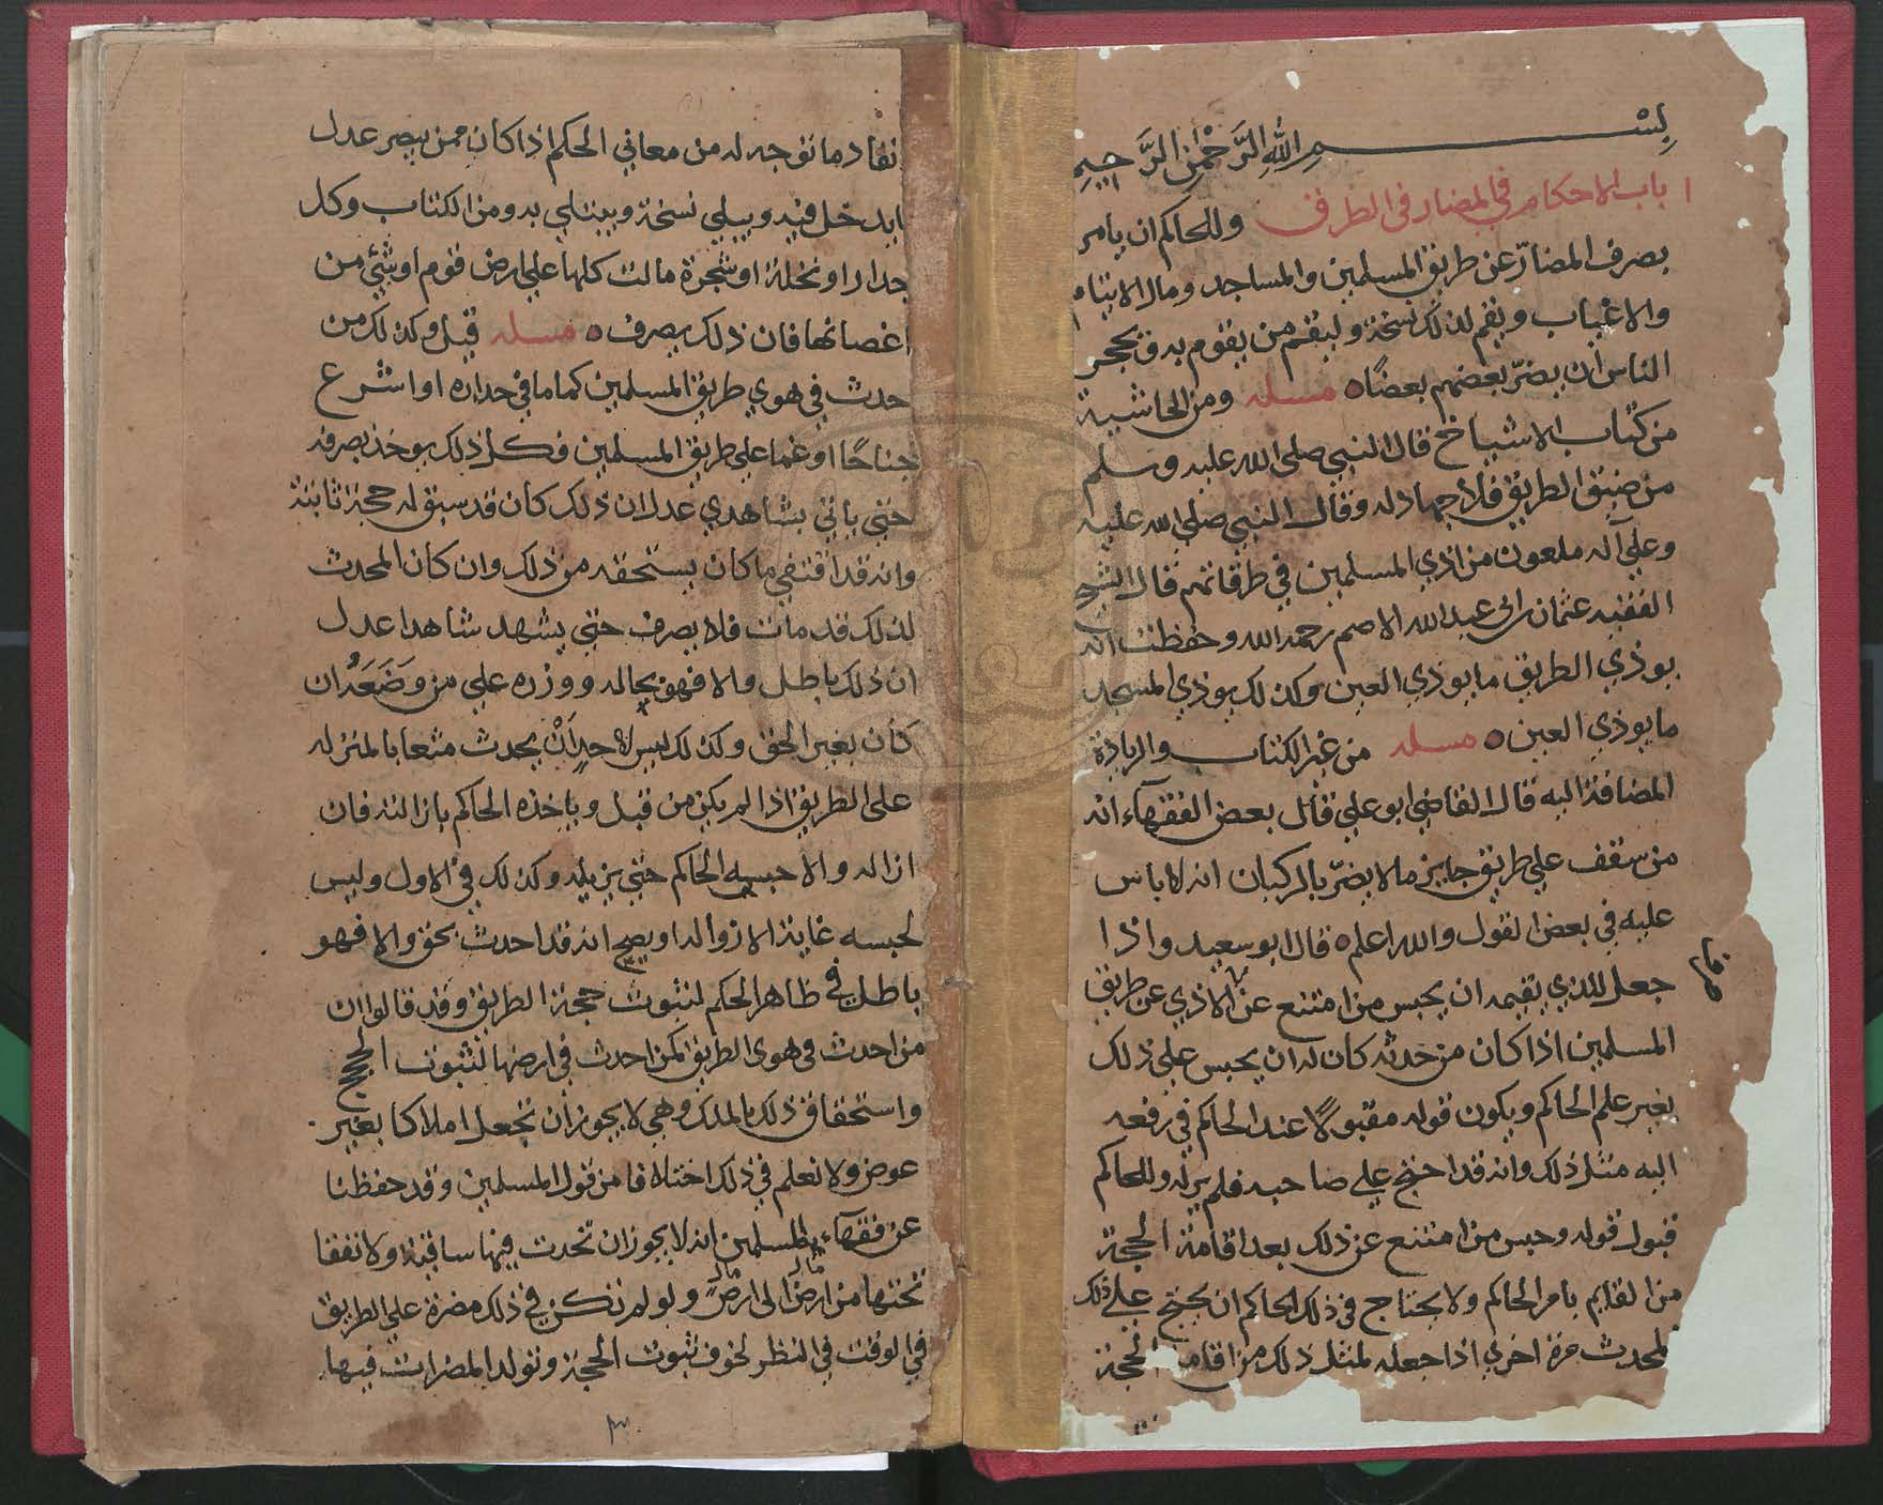 بسم الله الرحمن الرحيم
باب الاحكام في المضار في الطرق وللحاكم ان يامر
بصرف المضارّ عن طريق المسلمين والمساجد ومال الايتام
والاغياب ويقيم لذلك نسخة وليقم من يقوم به ويحجر
الناس ان يضرّ بعضهم بعضًا ه مسله ومن الحاشية
من كتاب الاشياخ قال النبي صلى الله عليه وسلم
من ضيق الطريق فلا جهاد له وقال النبي صلي الله عليه
وعلي آله ملعون من اذي المسلمين في طرقاتهم قال الشيخ
الفقيه عثمان بن ابي عبد الله الاصم رحمه الله وحفظت انه
يوذي الطريق ما يوذي العين وكذلك يوذي المسجد
ما يوذي العين ه مسله من غير الكتاب والزيادة
المضافة اليه قال القاضي ابو علي قال بعض الفقهآء انه
من سقف علي طريق جايز ما لا يضرّ بالركبان انه لا باس
عليه في بعض القول والله اعلم ه قال ابو سعيد واذا
جعل للذي يقيمه ان يحبس من امتنع عن الاذي عن طريق
المسلمين اذا كان من حدثه كان له ان يحبس علي ذلك
بغير علم الحاكم ويكون قوله مقبولًا عند الحاكم في رفعه
اليه مثل ذلك وانه قد احتج علي صاحبه فلم يزله وللحاكم
قبول قوله وحبس من امتنع عن ذلك بعد اقامة الحجة
من القايم بامر الحاكم ولا يحتاج في ذلك الحاكم ان يحتج علي ذلك
المحدث مرة اخري اذا جعله لمثل ذلك من اقامة الحجة
انفاد ما توجه له من معاني الحكم اذا كان ممن يبصر عدل
ما يدخل فيه ويبلي نسخة ويبتلي به ومن الكتاب وكل
جدار او نخلة او شجرة مالت كلها علي ارض قوم او شيئ من
اغصانها فان ذلك يصرف ه مسله قيل وكذلك من
حدث في هوي طريق المسلمين كما ما في جداره او اشرع
جناحًا او غما علي طريق المسلمين فكل ذلك يوخذ بصرفه
حتي ياتي بشاهدي عدل ان ذلك كان قد سبق له حجة ثابتة
وانه قد اقتفي ما كان يستحقه من ذلك وان كان المحدث
لذلك قد مات فلا يصرف حتي يشهد شاهدا عدل
ان ذلك باطل والا فهو بحاله ووزره علي من وَضَعَهُ ان
كان بغير الحق وكذلك ليس لاحدٍ اَنْ يحدث مثعابا لمنزله
على الطريق اذا لم يكن من قبل وياخذه الحاكم بازالته فان
ازاله والا حبسه الحاكم حتي يزيله وكذلك في الاول وليس
لحبسه غاية الا زواله او يصح انه قد احدث بحق والا فهو
باطل في ظاهر الحكم لثبوت حجة الطريق وقد قالوا ان
من احدث في هوي الطريق كمن احدث في ارضها لثبوت الحجج
واستحقاق ذلك بالملك وهي لا يجوز ان تجعل املاكا بغير
عوض ولا نعلم في ذلك اختلافا من قول المسلمين وقد حفظنا
عن فقهآء المسلمين انه لا يجوز ان تحدث فيها ساقية ولا نفقا
تحتها من ارض الى ارض ولو لم تكن في ذلك مضرة علي الطريق
مال
مال
في الوقت في النظر لخوف ثبوت الحجة وتولد المضرات فيها